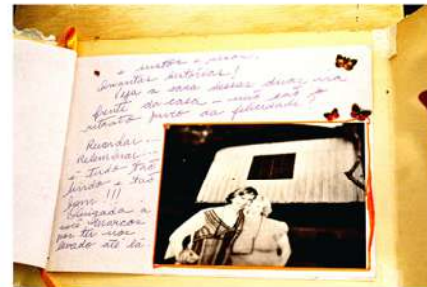 e sustos e risos,
quantas histórias!
Veja a cara dessas duas na
frente da casa - não são o
retrato puro da felicidade?
Recordar...
Relembrar...
é tudo tão
lindo e tão
bom!!!
Obrigada a
você Marcos
por ter nos
levado até lá